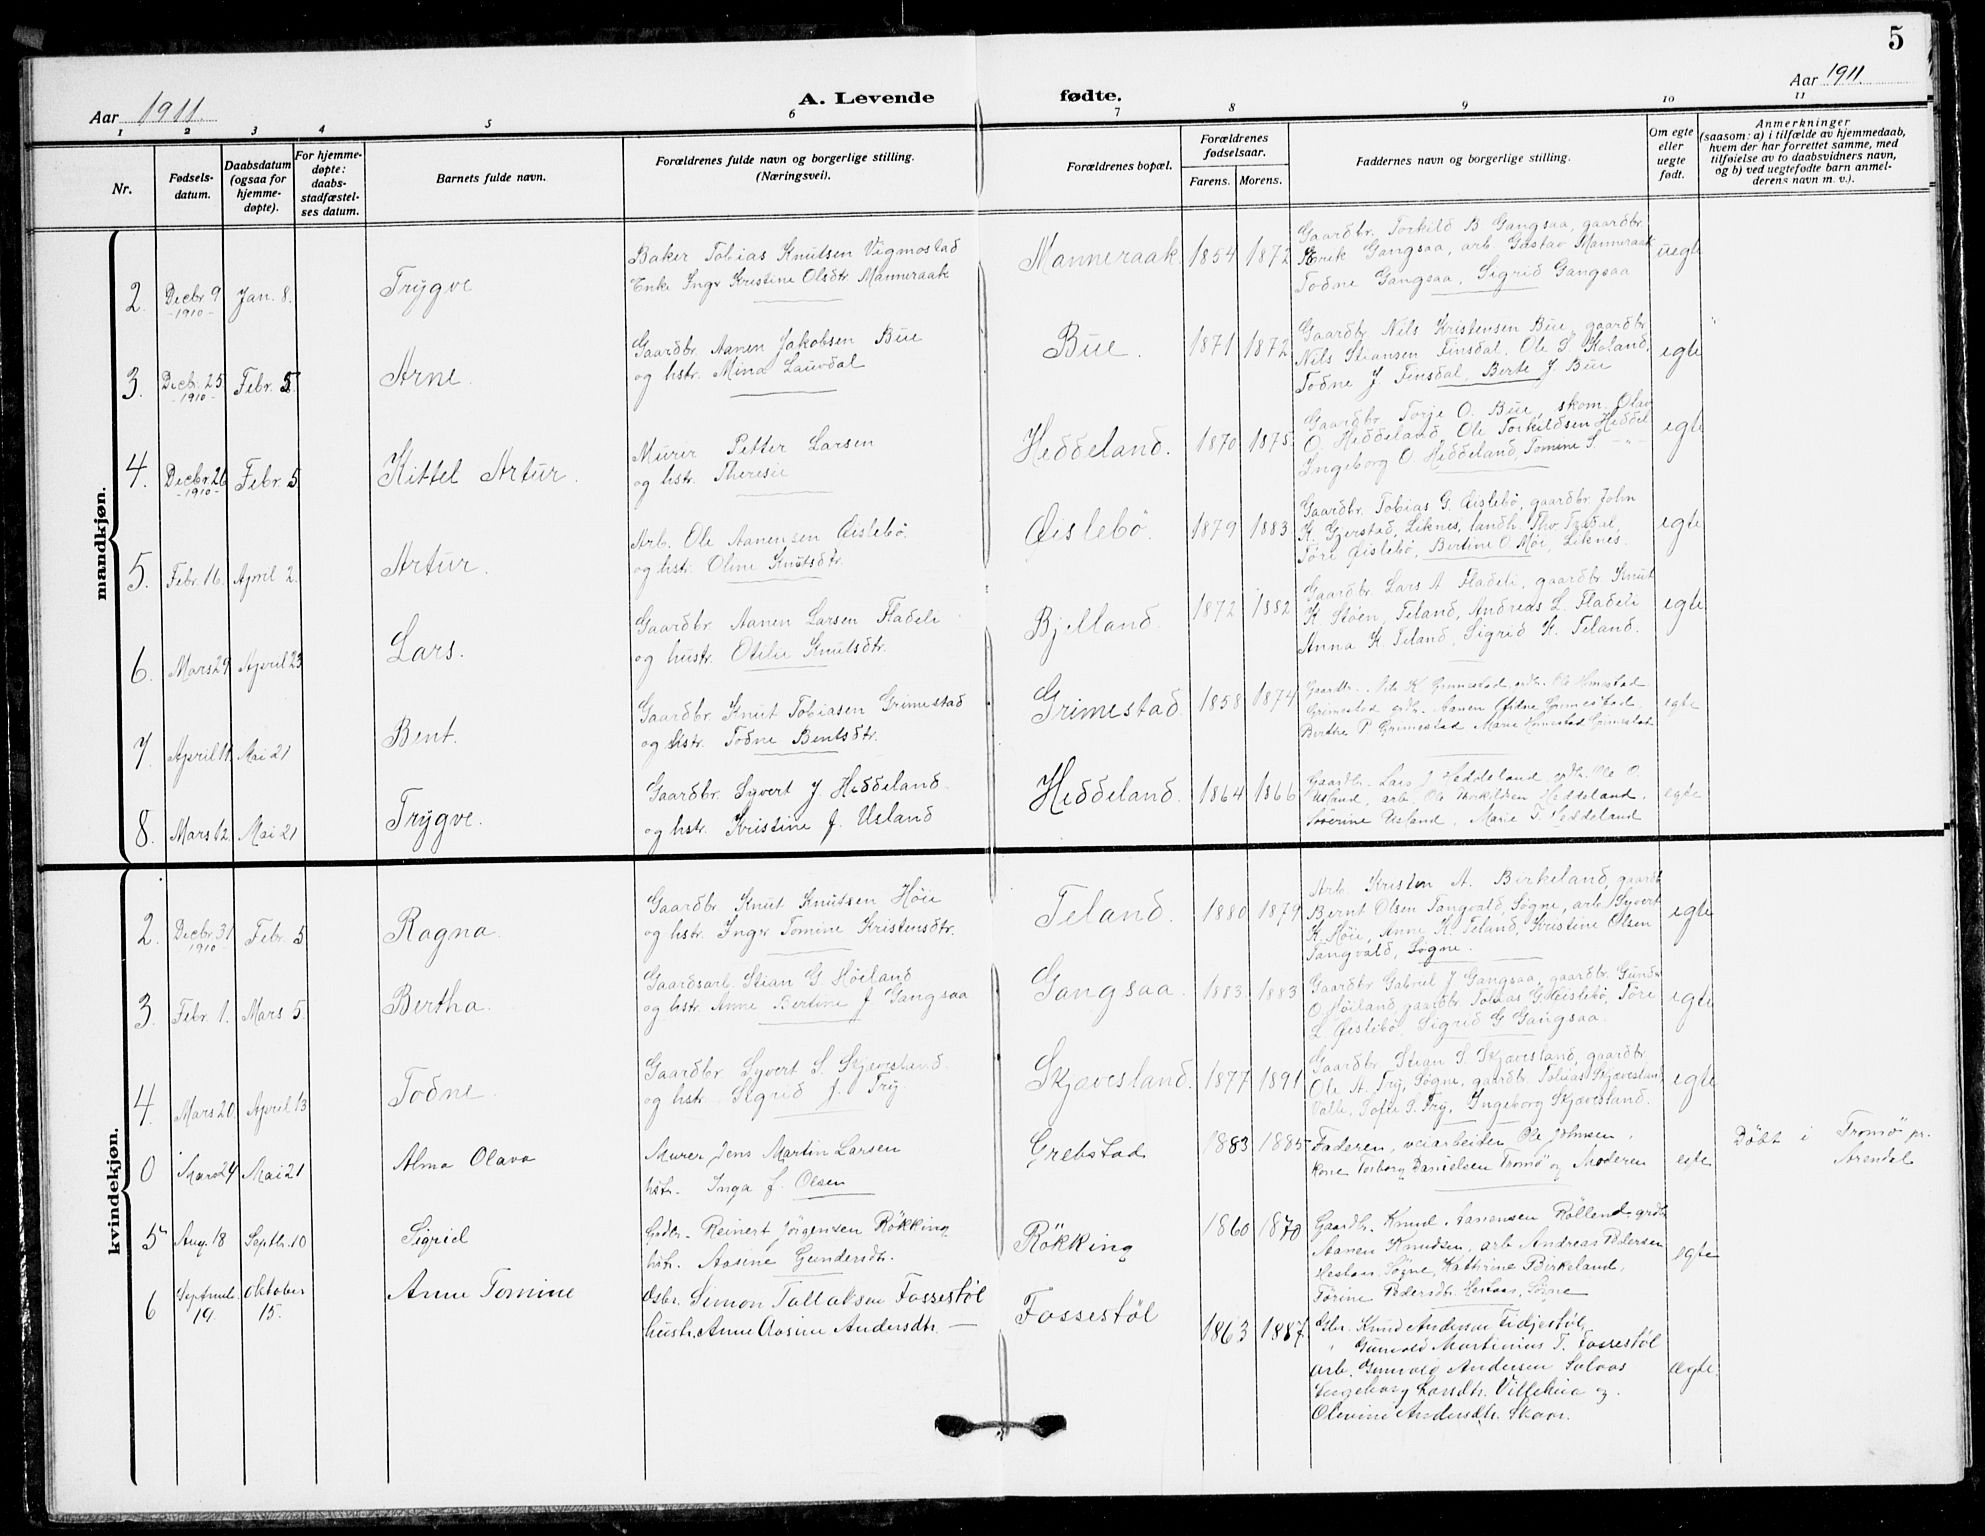 5
Aar 1911. A. Levende fødte. Aar 1911.
1 2 3 4 5 6 7 8 9 10 11
Nr.
Fødsels-
datum.
Daabsdatum
(ogsaa for
hjemme-
døpte).
For hjemme-
døpte:
daabs-
stadfæstel-
ses datum.
Barnets fulde navn.
Forældrenes fulde navn og borgerlige stilling.
(Næringsvei).
Forældrenes bopæl.
Forældrenes
fødselsaar.
Farens. Morens.
Faddernes navn og borgerlige stilling.
Om egte
eller
uegte
født.
Anmerkninger
(saasom: a) i tilfælde av hjemmedaab,
hvem der har forrettet samme, med
tilføielse av to daabsvidners navn,
og b) ved uegtefødte barn anmel-
derens navn m. v.).
mandkjøn.
2. Decbr. 9 -1910- Jan. 8. Trygve
Baker Tobias Knutsen Vigmostad
Enke Ingr Kristine Olsdtr Manneraak
Manneraak. 1854 1872
Gaardbr. Torkild B Gangsaa, gaardbr.
Erik Gangsaa, arb. Gustav Manneraak
Todne Gangsaa, Sigrid Gangsaa
uegte
3. Decbr. 25 -1910- Febr. 5 Arne.
Gaardbr. Aanen Jakobsen Bue
og hstr. Mina Lauvdal
Bue. 1871 1872
Gaardbr. Nils Kristensen Bue, gaardbr.
Nils Stiansen Finsdal. Ole S. Holand,
Todne J. Finsdal, Berte J. Bue
egte
4. Decbr. 26 -1910- Febr. 5 Kittel Artur.
Murer Petter Larsen
og hstr. Theresie
Heddeland. 1870 1875
Gaardbr. Torje O. Bue, skom. Olav
O. Heddeland, Ole Torkildsen Heddel
Ingeborg O. Heddeland, Tomine T. -"-
egte
5. Febr. 16. April 2. Artur.
Arb. Ole Aanensen Øislebö.
og hstr. Oline Knutsdtr.
Øislebö. 1879 1883
Gaardbr. Tobias G. Øislebö, gaardbr. John
K. Gjerstad, Liknes, landh. Thv.
Töri Øislebö, Bertine O. Möi, Liknes.
egte
6. Mars 29 April 23 Lars.
Gaardbr. Aanen Larsen Fladeli
og hustr. Otilie Knutsdtr.
Bjelland. 1872 1882
Gaardbr. Lars A Fladeli, gaardbr. Knut
K. Stöen, Teland, Andreas L. Fladeli
Anna K. Teland, Sigrid K. Teland.
egte
7. April 11. Mai 21 Bent.
Gaardbr. Knut Tobiasen Grimestad
og hstr. Todne Bentsdtr.
Grimestad. 1858 1874
Gaardbr. Nils K. Grimestad, Ole
Grimestad Aanen Grimestad.
Berthe P Grimestad Marie Grimestad
egte
8. Mars 12. Mai 21 Trygve.
Gaardbr. Syvert J. Heddeland.
og hstr. Kristine J. Usland
Heddeland. 1864 1866
Gaardbr. Lars J. Heddeland, Ole O.
Usland, arb. Ole Thorkildsen Heddeland.
Severine Usland, Marie T. Heddeland
egte
kvindekjøn.
2. Decbr. 31 1910 Febr. 5 Ragna.
Gaardbr Knut Knutsen Höie
og hstr. Inger Tomine Kristensdtr.
Teland. 1880 1879
Arb. Kristen A. Birkeland, gaardb
Bernt Olsen Tangvald, Sögne, arb. Syvert
K. Höie, Anne K. Teland, Kristine Olsen
Tangvald, Sögne.
egte
3. Febr. 1. Mars 5. Bertha.
Gaardsarb. Stian G. Höiland
og hstr. Anne Bertine J. Gangsaa
Gangsaa. 1883 1883
Gaardbr Gabriel J. Gangsaa, gaardbr. Gunder
O. Höiland, gaardbr. Tobias G. Øislebö, Töri
L. Øislebö, Sigrid G. Gangsaa.
egte
4. Mars 20. April 13 Todne.
Gaardbr. Syvert S. Skjævesland.
og hstr. Sigrid J. Try.
Skjævesland. 1877 1891
Gaardbr. Stian S. Skjævesland, gaardbr.
Ole A. Try, Sögne, gaardbr. Tobias Skjævesland,
Valle, Sofie S. Try, Ingeborg Skjævesland.
egte
0 Mars 24 Mai 21 Alma Olava
Murer Jens Martin Larsen
hstr. Inga J. Olsen
Grebstad 1883 1885
Faderen, veiarbeider Ole Johnsen,
kone Torborg Danielsen Tromö og Moderen
egte
Döbt i Tromö pr.
Arendal
5 Aug. 18 Septbr. 10 Sigrid
Gdbr. Reinert Jörgensen Rökking
hstr. Aasine Gundersdtr.
Rökking 1860 1870
Gaardbr. Knud Aanensen Rölland, grdbr
Aanen Knudsen, arb. Andreas Pedersen
Hestaas, Sögne, Kathrine Birkeland,
Törine Pedersdtr. Hestaas, Sögne
egte
6 Septemb. 19. Oktober 15. Anne Tomine
Gsbr. Simon Tallaksen Fossestöl
hustr. Anne Aasine Andersdtr.
Fossestöl 1863 1887
Gbr. Knud Andersen Eidjestöl,
" Gunvald Martinius T. Fossestöl
arb. Gunvald Andersen Solaas
Ingeborg og
Olevine Andersdtr. Skaar.
ægte